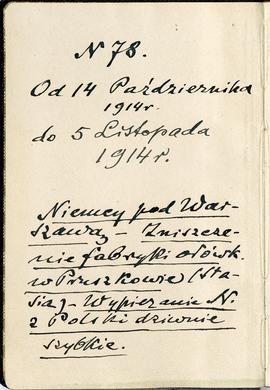 N 78.
Od 14 Października
1914r.
do 5 Listopada
1914r.
Niemcy pod War-
szawą - Zniszcze-
nie fabryki ołówk.
w Pruszkowie (Sta-
sia) - Wypieranie N.
z Polski dziwnie
szybkie.